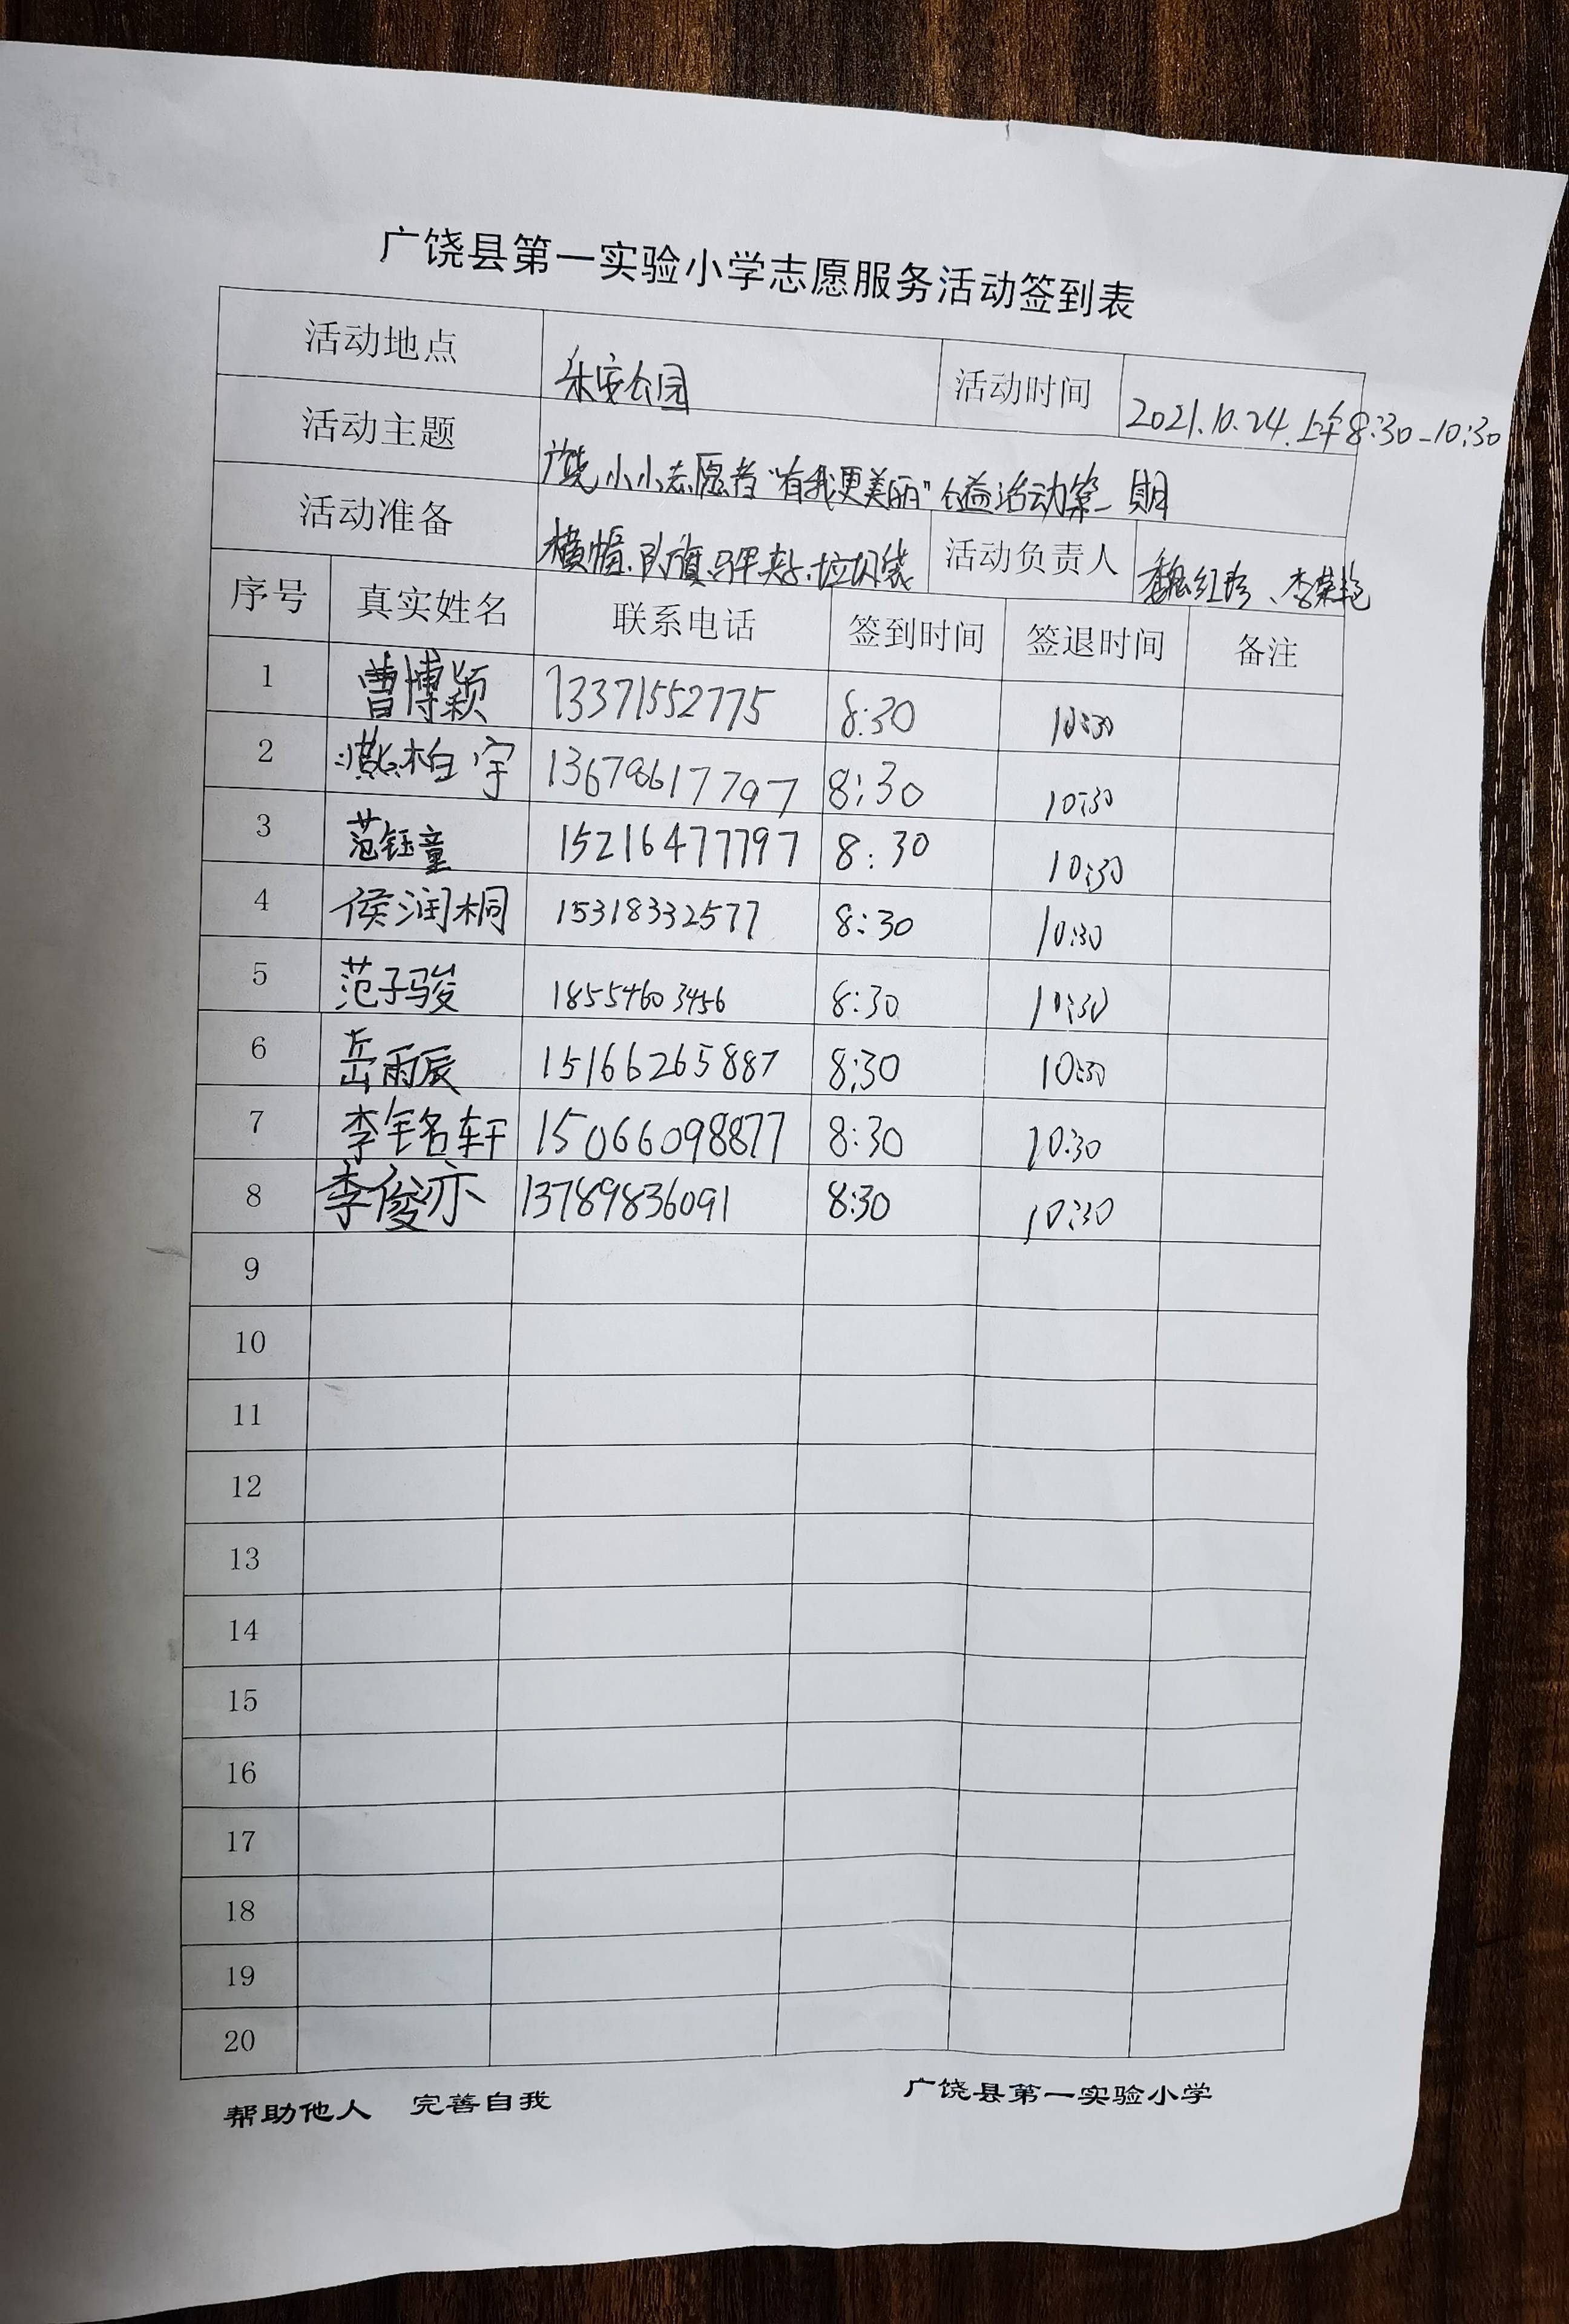 广饶县第一实验小学志愿服务活动签到表
活动地点 乐安公园 活动时间 2021.10.24.上午8:30-10:30
活动主题 广饶小小志愿者“有我更美丽”公益活动第一期
活动准备 横幅、队旗、马甲、夹子、垃圾袋 活动负责人 魏红珍、李荣艳
序号 真实姓名 联系电话 签到时间 签退时间 备注
1 曹博颖 13371552775 8:30 10:30
2 柏宇 13678617797 8:30 10:30
3 范钰童 15216477797 8:30 10:30
4 侯润桐 15318332577 8:30 10:30
5 范子骏 18554603456 8:30 10:30
6 岳雨辰 15166265887 8:30 10:30
7 李铭轩 15066098877 8:30 10:30
8 李俊亦 13789836091 8:30 10:30
9
10
11
12
13
14
15
16
17
18
19
20
帮助他人 完善自我 广饶县第一实验小学